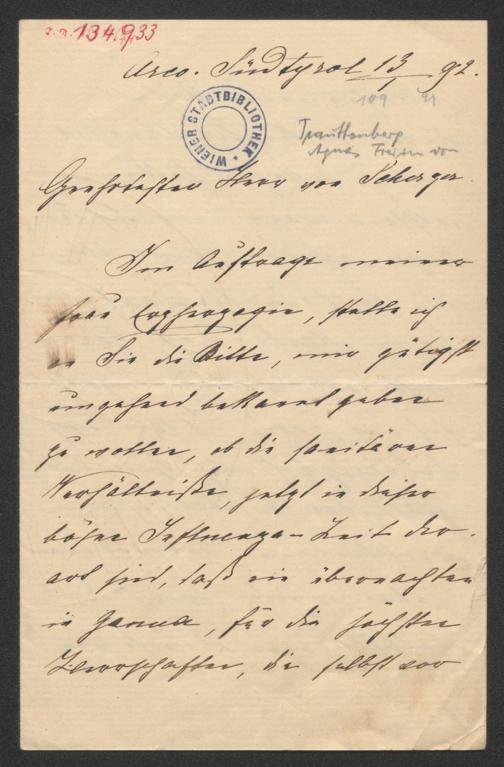 J.N. 134.933
Arco. Südtyrol 13/1 92.
WIENER STADTBIBLIOTHEK
109
Trauttenberg
Agnes Freiin von
Geehrtester Herr von Scherzer
Im Auftrage meiner
Frau Erzherzogin, stelle ich
an Sie die Bitte, mir gütigst
umgehend bekannt geben
zu wollen, ob die sanitären
Verhältniße, jetzt in dieser
bösen Influenza-Zeit der-
art sind, daß ein übernachten
in Genua, für die höchsten
Herrschaften, die selbst vor